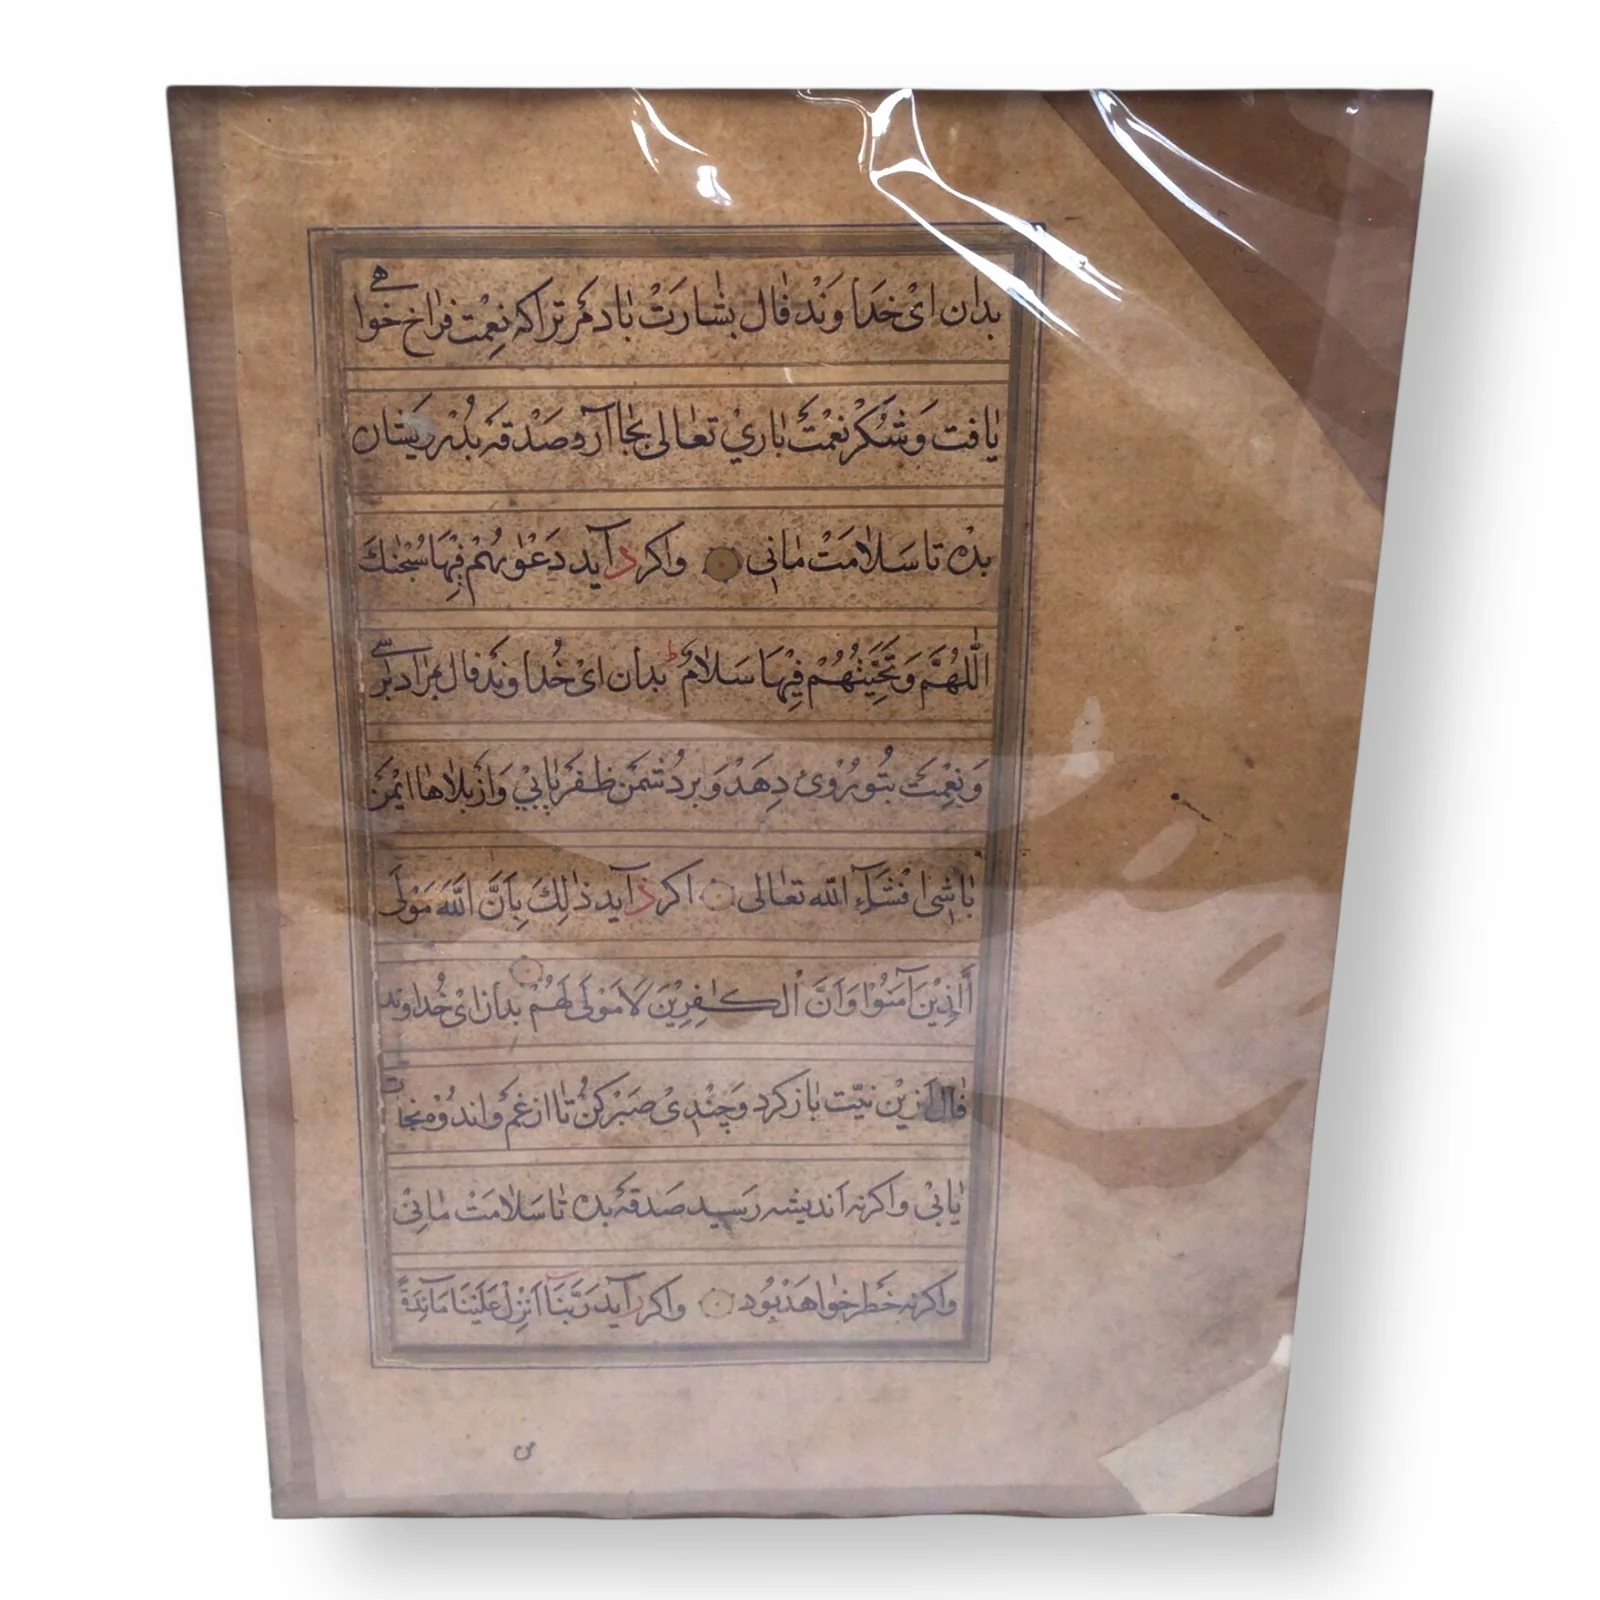 بدان اى خداوند فال بشارت باد مر ترا كه نعمت فراخ خواهے
يافت و شكر نعمت باري تعالى بجا آر و صدقه بدرويشان
بده تا سلامت مانى واكر د آيد دَعْوٰىهُمْ فِيْهَا سُبْحٰنَكَ
اللّٰهُمَّ وَتَحِيَّتُهُمْ فِيْهَا سَلَامٌ بدان اى خداوند فال مراد برسے
و نعمت بتو روى دهد و بر دشمن ظفر يابي و از بلاها ايمن
باشى انشآء الله تعالى اكر ذ آيد ذٰلِكَ بِاَنَّ اللّٰهَ مَوْلَى
الَّذِيْنَ اٰمَنُوْا وَاَنَّ الْكٰفِرِيْنَ لَا مَوْلٰى لَهُمْ بدان اى خداوند
فال ازين نيّت باز كرد و چندى صبر كن تا از غم و اندوه نجات
يابى واكرنه انديشه رسيد صدقه بده تا سلامت مانى
واكرنه خطر خواهد بود واكر ر آيد رَبَّنَآ اَنْزِلْ عَلَيْنَا مَآئِدَةً